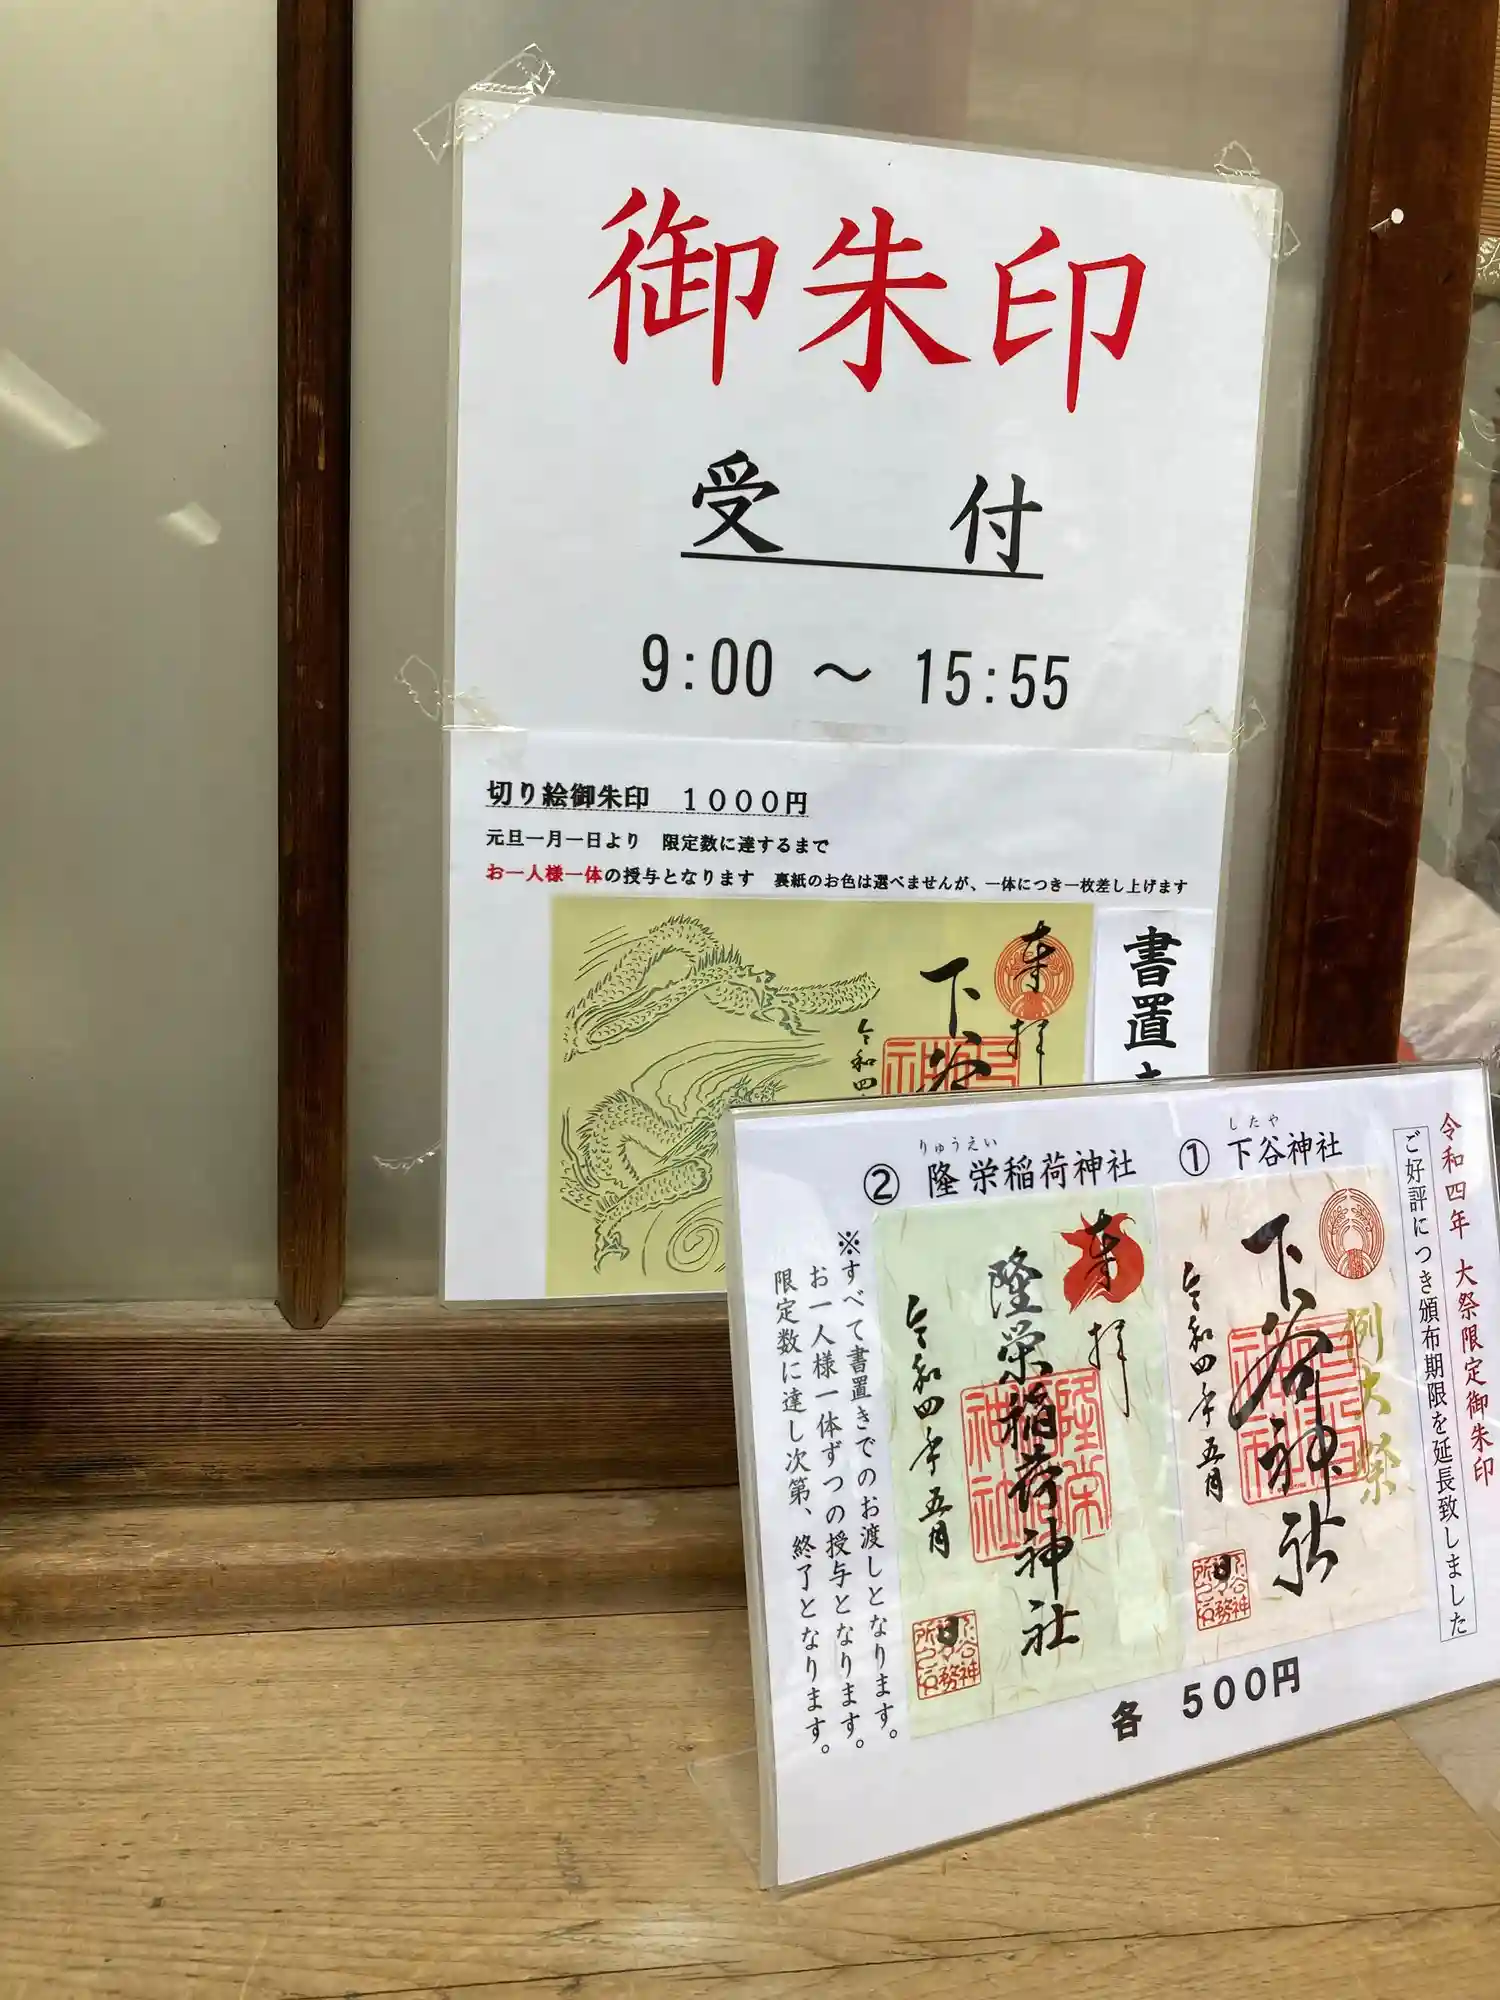 御朱印
受付
9:00 ～ 15:55
切り絵御朱印 1000円
元旦一月一日より 限定数に達するまで
お一人様一体の授与となります 裏紙のお色は選べませんが、一体につき一枚差し上げます
奉拝
下谷
令和四
書置
令和四年 大祭限定御朱印
ご好評につき頒布期限を延長致しました
①下谷神社
したや
奉拝
例大祭
下谷神社
令和四年五月 日
②隆栄稲荷神社
りゅうえい
奉拝
隆栄稲荷神社
隆栄稲荷神社
令和四年五月 日
※すべて書置きでのお渡しとなります。
お一人様一体ずつの授与となります。
限定数に達し次第、終了となります。
各 500円